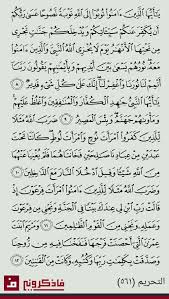 يَٰٓأَيُّهَا ٱلَّذِينَ ءَامَنُوا۟ تُوبُوٓا۟ إِلَى ٱللَّهِ تَوْبَةً نَّصُوحًا عَسَىٰ رَبُّكُمْ
أَن يُكَفِّرَ عَنكُمْ سَيِّـَٔاتِكُمْ وَيُدْخِلَكُمْ جَنَّٰتٍ تَجْرِى
مِن تَحْتِهَا ٱلْأَنْهَٰرُ يَوْمَ لَا يُخْزِى ٱللَّهُ ٱلنَّبِىَّ وَٱلَّذِينَ ءَامَنُوا۟
مَعَهُۥ نُورُهُمْ يَسْعَىٰ بَيْنَ أَيْدِيهِمْ وَبِأَيْمَٰنِهِمْ يَقُولُونَ رَبَّنَآ
أَتْمِمْ لَنَا نُورَنَا وَٱغْفِرْ لَنَآ إِنَّكَ عَلَىٰ كُلِّ شَىْءٍ قَدِيرٌ ٨
يَٰٓأَيُّهَا ٱلنَّبِىُّ جَٰهِدِ ٱلْكُفَّارَ وَٱلْمُنَٰفِقِينَ وَٱغْلُظْ عَلَيْهِمْ
وَمَأْوَىٰهُمْ جَهَنَّمُ وَبِئْسَ ٱلْمَصِيرُ ٩ ضَرَبَ ٱللَّهُ مَثَلًا
لِّلَّذِينَ كَفَرُوا۟ ٱمْرَأَتَ نُوحٍ وَٱمْرَأَتَ لُوطٍ كَانَتَا تَحْتَ
عَبْدَيْنِ مِنْ عِبَادِنَا صَٰلِحَيْنِ فَخَانَتَاهُمَا فَلَمْ يُغْنِيَا عَنْهُمَا
مِنَ ٱللَّهِ شَيْـًٔا وَقِيلَ ٱدْخُلَا ٱلنَّارَ مَعَ ٱلدَّٰخِلِينَ ١٠
وَضَرَبَ ٱللَّهُ مَثَلًا لِّلَّذِينَ ءَامَنُوا۟ ٱمْرَأَتَ فِرْعَوْنَ إِذْ
قَالَتْ رَبِّ ٱبْنِ لِى عِندَكَ بَيْتًا فِى ٱلْجَنَّةِ وَنَجِّنِى مِن فِرْعَوْنَ
وَعَمَلِهِۦ وَنَجِّنِى مِنَ ٱلْقَوْمِ ٱلظَّٰلِمِينَ ١١ وَمَرْيَمَ ٱبْنَتَ
عِمْرَٰنَ ٱلَّتِىٓ أَحْصَنَتْ فَرْجَهَا فَنَفَخْنَا فِيهِ مِن رُّوحِنَا
وَصَدَّقَتْ بِكَلِمَٰتِ رَبِّهَا وَكُتُبِهِۦ وَكَانَتْ مِنَ ٱلْقَٰنِتِينَ ١٢
التحريم (٥٦١) فاذكروني